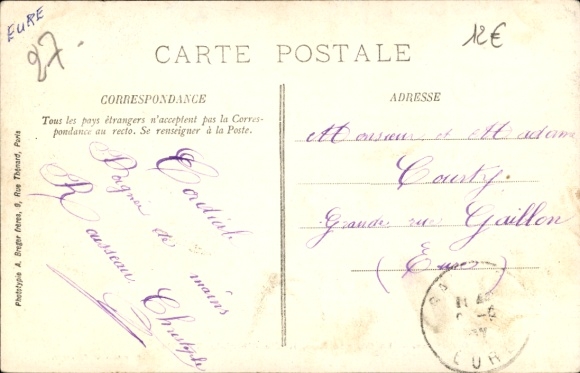 EURE
27
12€
CARTE POSTALE
CORRESPONDANCE
Tous les pays étrangers n'acceptent pas la Corres-
pondance au recto. Se renseigner à la Poste.
Cordiale
Poignée de mains
Rousseau Christophe
ADRESSE
Monsieur et Madame
Courty.
Grande rue Gaillon
(Eure)
EURE
Phototypie A. Breger frères, 9, Rue Thénard, Paris